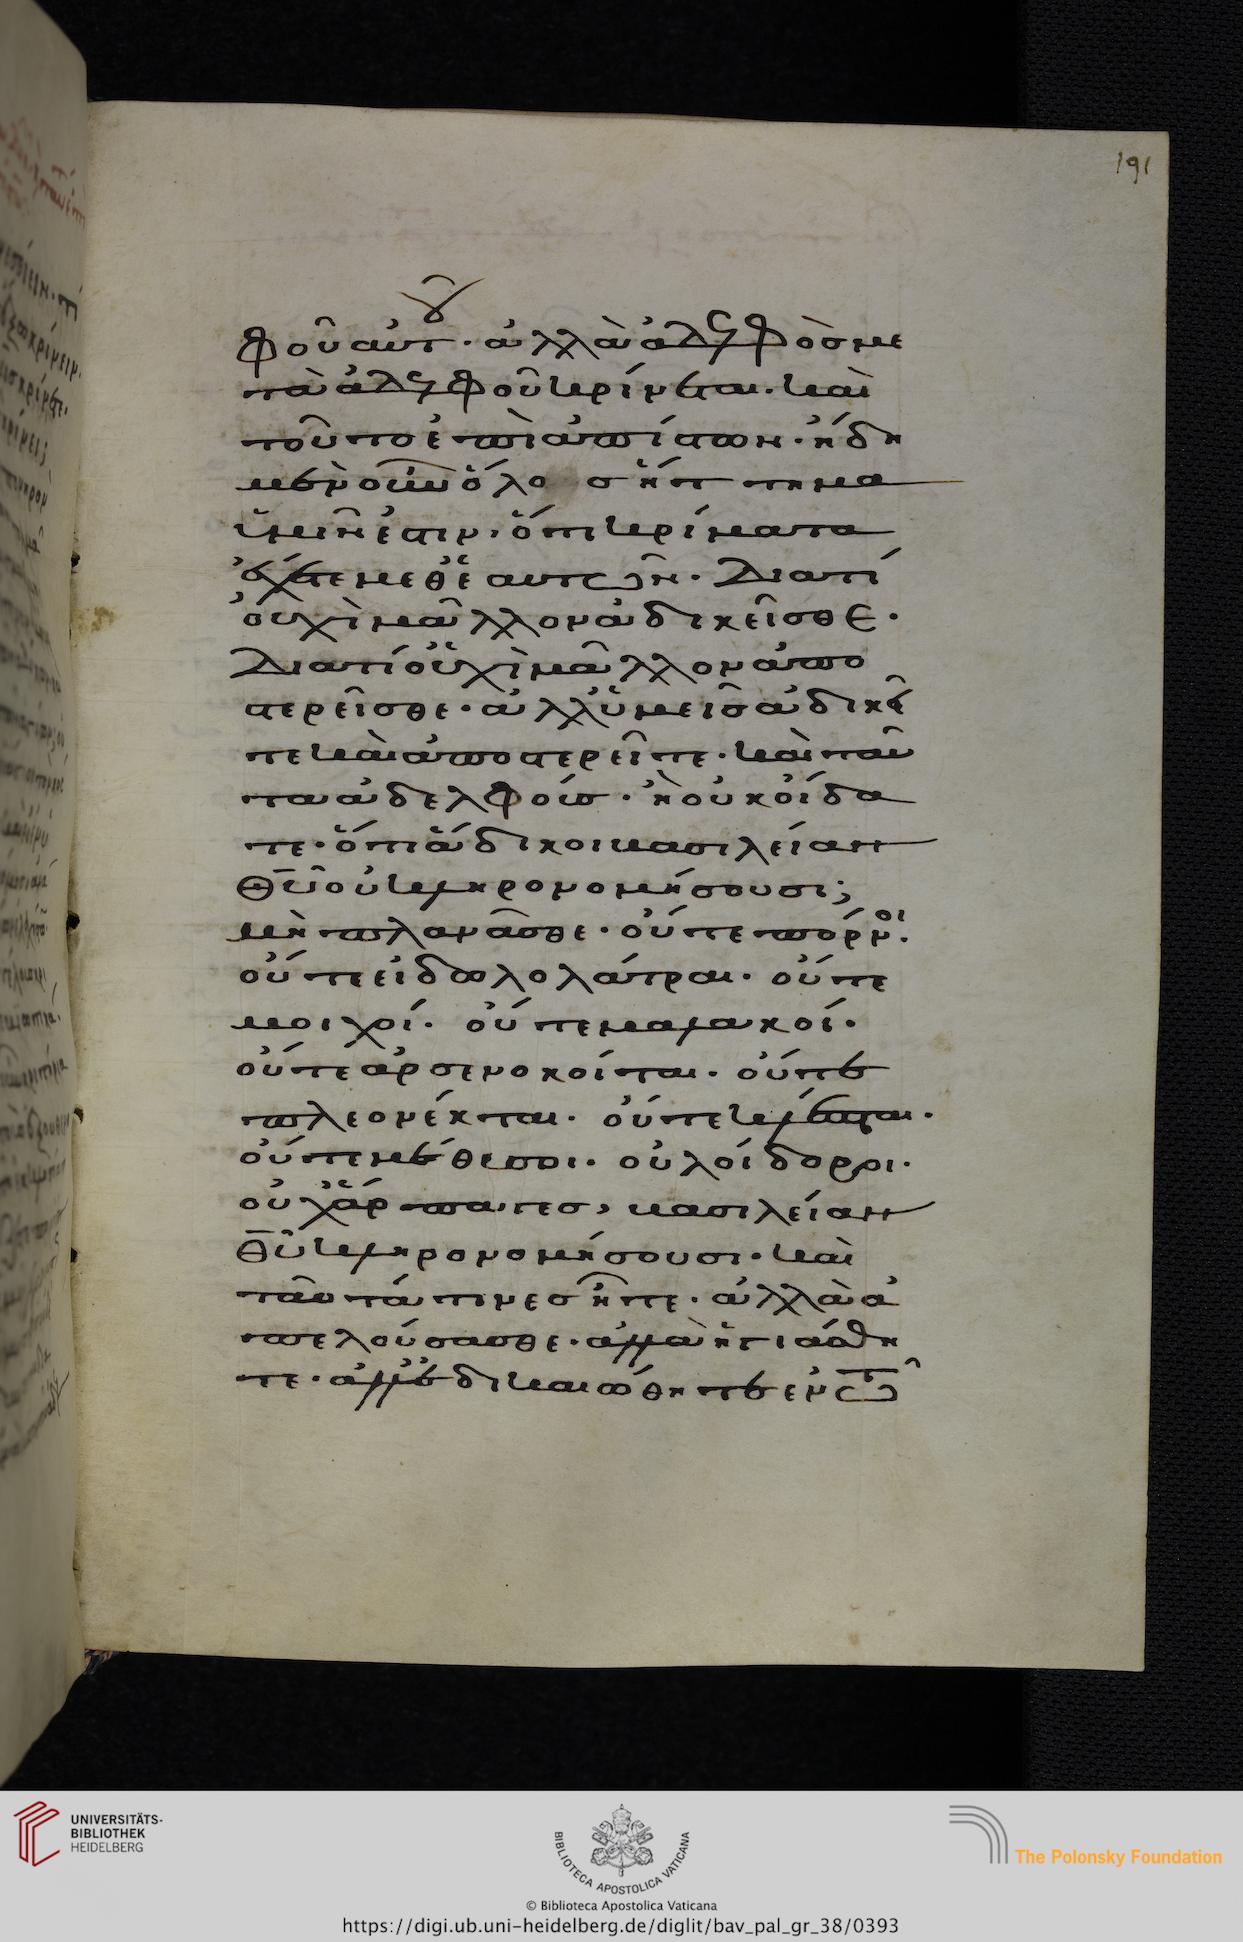 191
φοῦ αὐτοῦ· ἀλλὰ ἀδελφὸς με
τὰ ἀδελφοῦ κρίνεται· καὶ
τοῦτο ἐπὶ ἀπίστων· ἤδη
μὲν οὖν ὅλο σ ἥττημα
ὑμῖν ἐστιν· ὅτι κρίματα
ἔχετε μεθ ἑαυτῶν· Διατί
οὐχὶ μᾶλλον ἀδικεῖσθε·
Διατί οὐχὶ μᾶλλον ἀπο
στερεῖσθε· ἀλλ ὑμεῖς ἀδικεῖ
τε καὶ ἀποστερεῖτε· καὶ ταῦ
τα ἀδελφούς· ἢ οὐκ οἴδα
τε· ὅτι ἄδικοι βασιλείαν
θυ οὐ κληρονομήσουσι;
μὴ πλανᾶσθε· οὔτε πόρνοι·
οὔτε εἰδωλολάτραι· οὔτε
μοιχοί· οὔτε μαλακοί·
οὔτε ἀρσενοκοίται· οὔτε
πλεονέκται· οὔτε κλέπται·
οὔτε μέθυσοι· οὐ λοίδοροι·
οὐχ ἅρπαγες, βασιλείαν
θυ κληρονομήσουσι· καὶ
ταῦτά τινες ἦτε· ἀλλὰ ἀ
πελούσασθε· ἀλλὰ ἡγιάσθη
τε· ἀλλ ἐδικαιώθητε ἐν τῶ
UNIVERSITÄTS-
BIBLIOTHEK
HEIDELBERG
BIBLIOTECA APOSTOLICA VATICANA
The Polonsky Foundation
© Biblioteca Apostolica Vaticana
https://digi.ub.uni-heidelberg.de/diglit/bav_pal_gr_38/0393